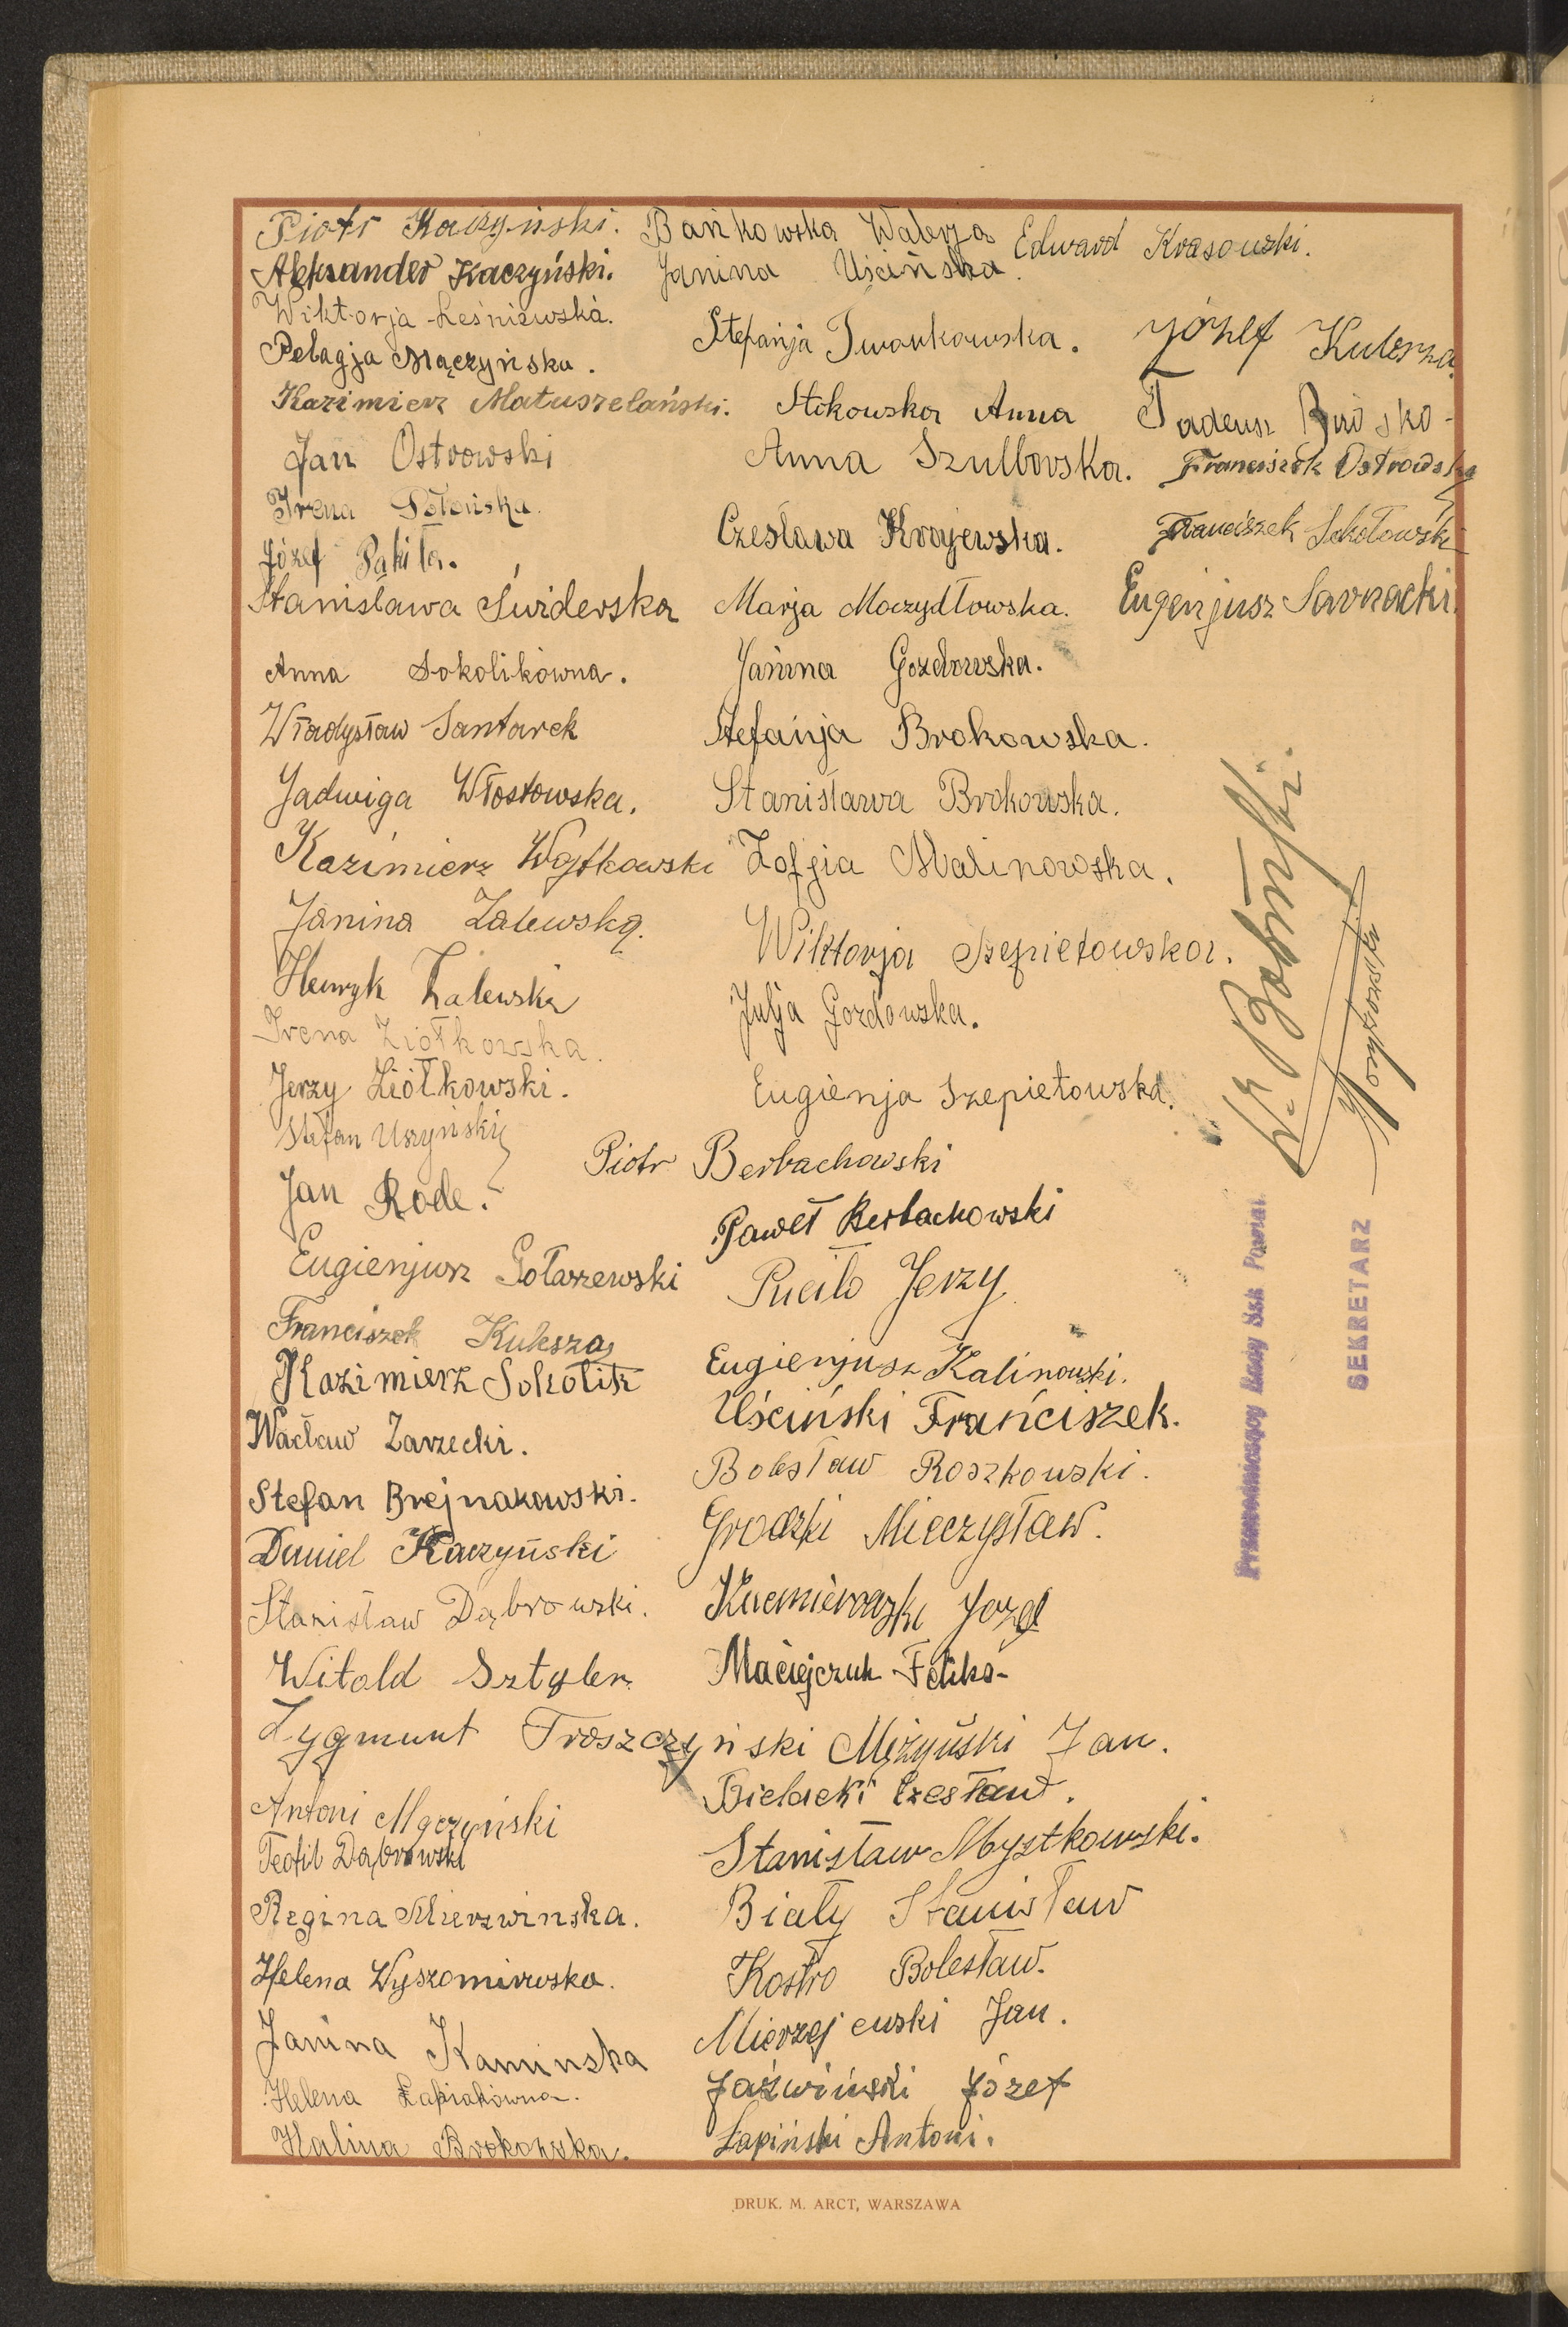 Piotr Kaczyński.
Aleksander Kaczyński.
Wiktorja Leśniewska.
Pelagja Mączyńska.
Kazimierz Matuszelański.
Jan Ostrowski
Irena Połońska.
Józef Pakiła.
Stanisława Świderska
Anna Sokolikówna.
Władysław Santarek
Jadwiga Włostowska.
Kazimierz Wojtkowski
Janina Zalewska.
Henryk Zalewski
Irena Ziółkowska.
Jerzy Ziółkowski.
Stefan Uszyński
Jan Rode.
Eugienjusz Gołaszewski
Franciszek Kuksza
Kazimierz Sokolik
Wacław Zarzecki.
Stefan Brejnakowski.
Daniel Kaczyński
Stanisław Dąbrowski.
Witold Sztyler
Zygmunt Troszczyński
Antoni Mączyński
Teofil Dąbrowski
Regina Mierzwinska.
Helena Wyszomirska.
Janina Kaminska
Helena Łapiakówna.
Halina Brokowska.
Bańkowska Walerja
Janina Uścińska.
Stefanja Iwankowska.
Stokowska Anna
Anna Szulborska.
Czesława Krajewska.
Marja Moczydłowska.
Janina Gozdowska.
Stefanja Brokowska.
Stanisława Brokowska.
Zofjia Malinowska.
Wiktorja Szepietowska.
Julja Gozdowska.
Eugienja Szepietowska.
Piotr Berbachowski
Paweł Berbachowski
Puciło Jerzy
Eugienjusz Kalinowski.
Uściński Frańciszek.
Bolesław Roszkowski.
Grodzki Mieczysław.
Józef
Maciejczuk Feliks-
Mężyński Jan.
Bielacki Czesław.
Stanisław Mystkowski.
Biały Stanisław
Kostro Bolesław.
Mierzejewski Jan.
Jaźwiński Józef
Łapiński Antoni.
Edward Krasowski.
Józef Kulesza.
Tadeusz
Franciszek Ostrowski
Franciszek Sokołowski
Eugenjusz Sarnacki.
SEKRETARZ
DRUK. M. ARCT, WARSZAWA